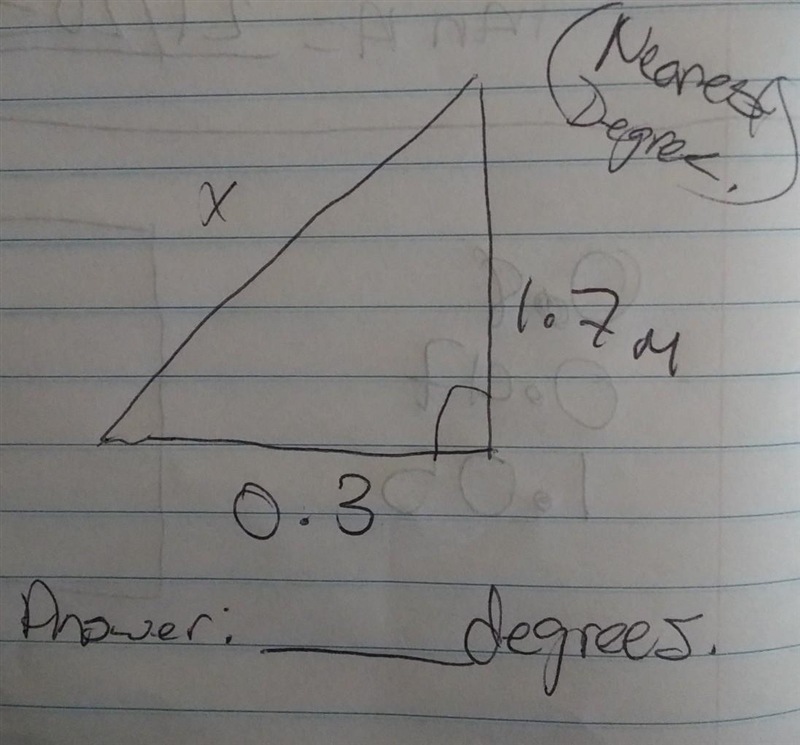 (Nearest
Degree.)
x
1.7 M
0.3
Answer: ______ degrees.